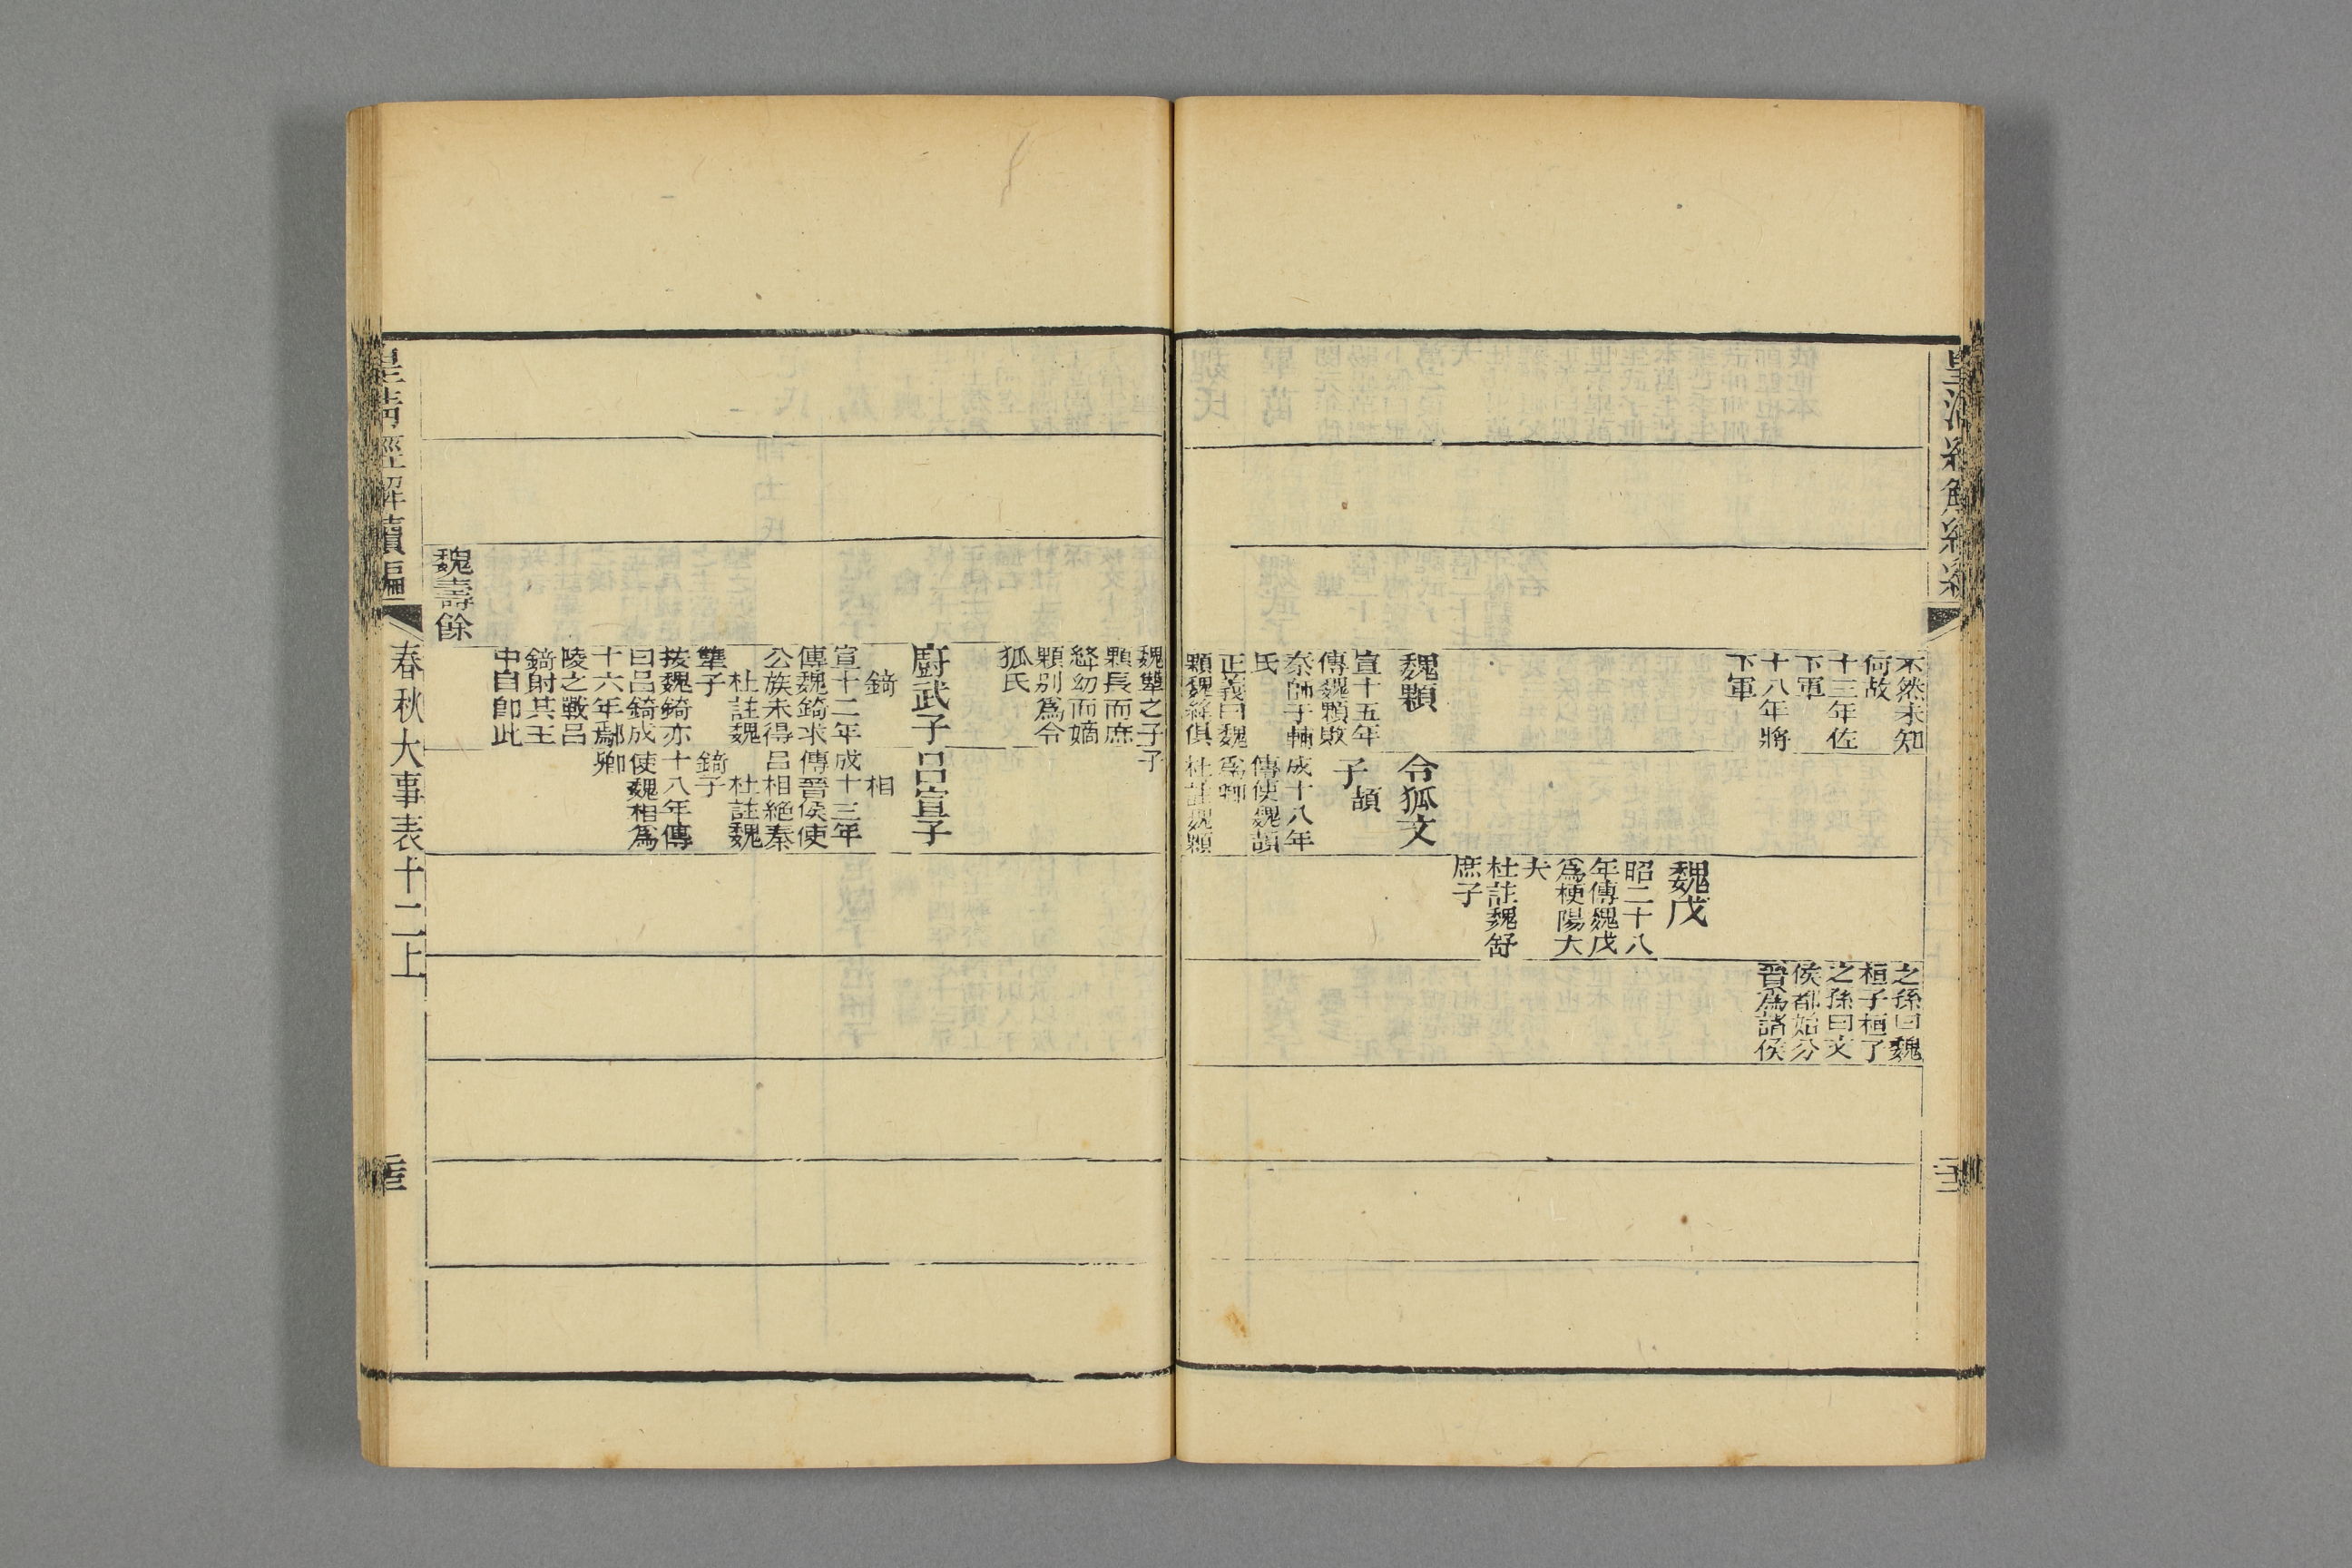 不然未知
何故
十三年佐
下軍
十八年將
下軍
魏顆
宣十五年
傳魏顆敗
秦師于輔
氏
正義曰魏
顆魏絳俱
令狐文
子頡
成十八年
傳使魏頡
爲卿
杜註魏顆
魏戊
昭二十八
年傳魏戊
爲梗陽大
夫
杜註魏舒
庶子
之孫曰魏
桓子桓子
之孫曰文
侯都始分
晉爲諸侯
魏犨之子
顆長而庶
絳幼而嫡
顆别爲令
狐氏
子
廚武子
錡
宣十二年
傳魏錡求
公族未得
杜註魏
犨子
按魏錡亦
曰呂錡成
十六年鄢
陵之戰呂
錡射其王
中目卽此
呂宣子
相
成十三年
傳晉侯使
呂相絕秦
杜註魏
錡子
十八年傳
使魏相爲
卿
魏壽餘
皇清經解續編
春秋大事表十二上